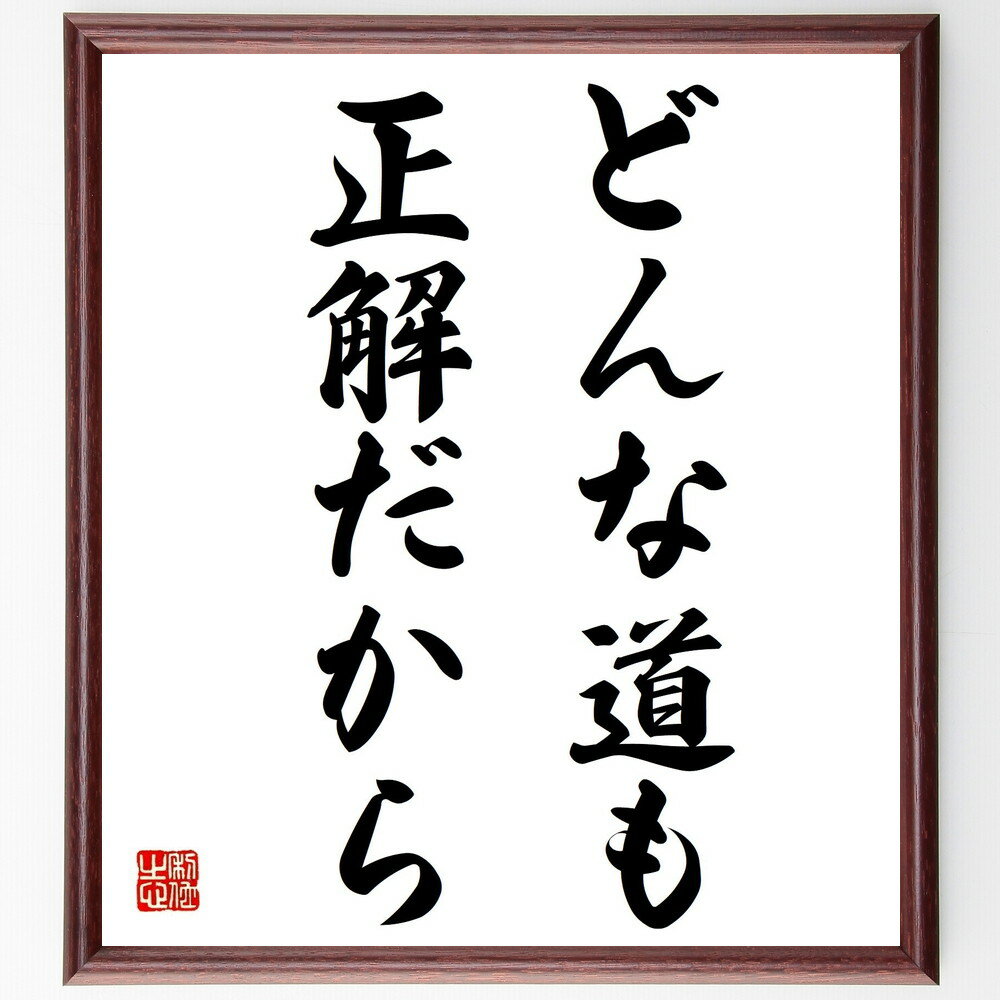 どんな道も
正解だから